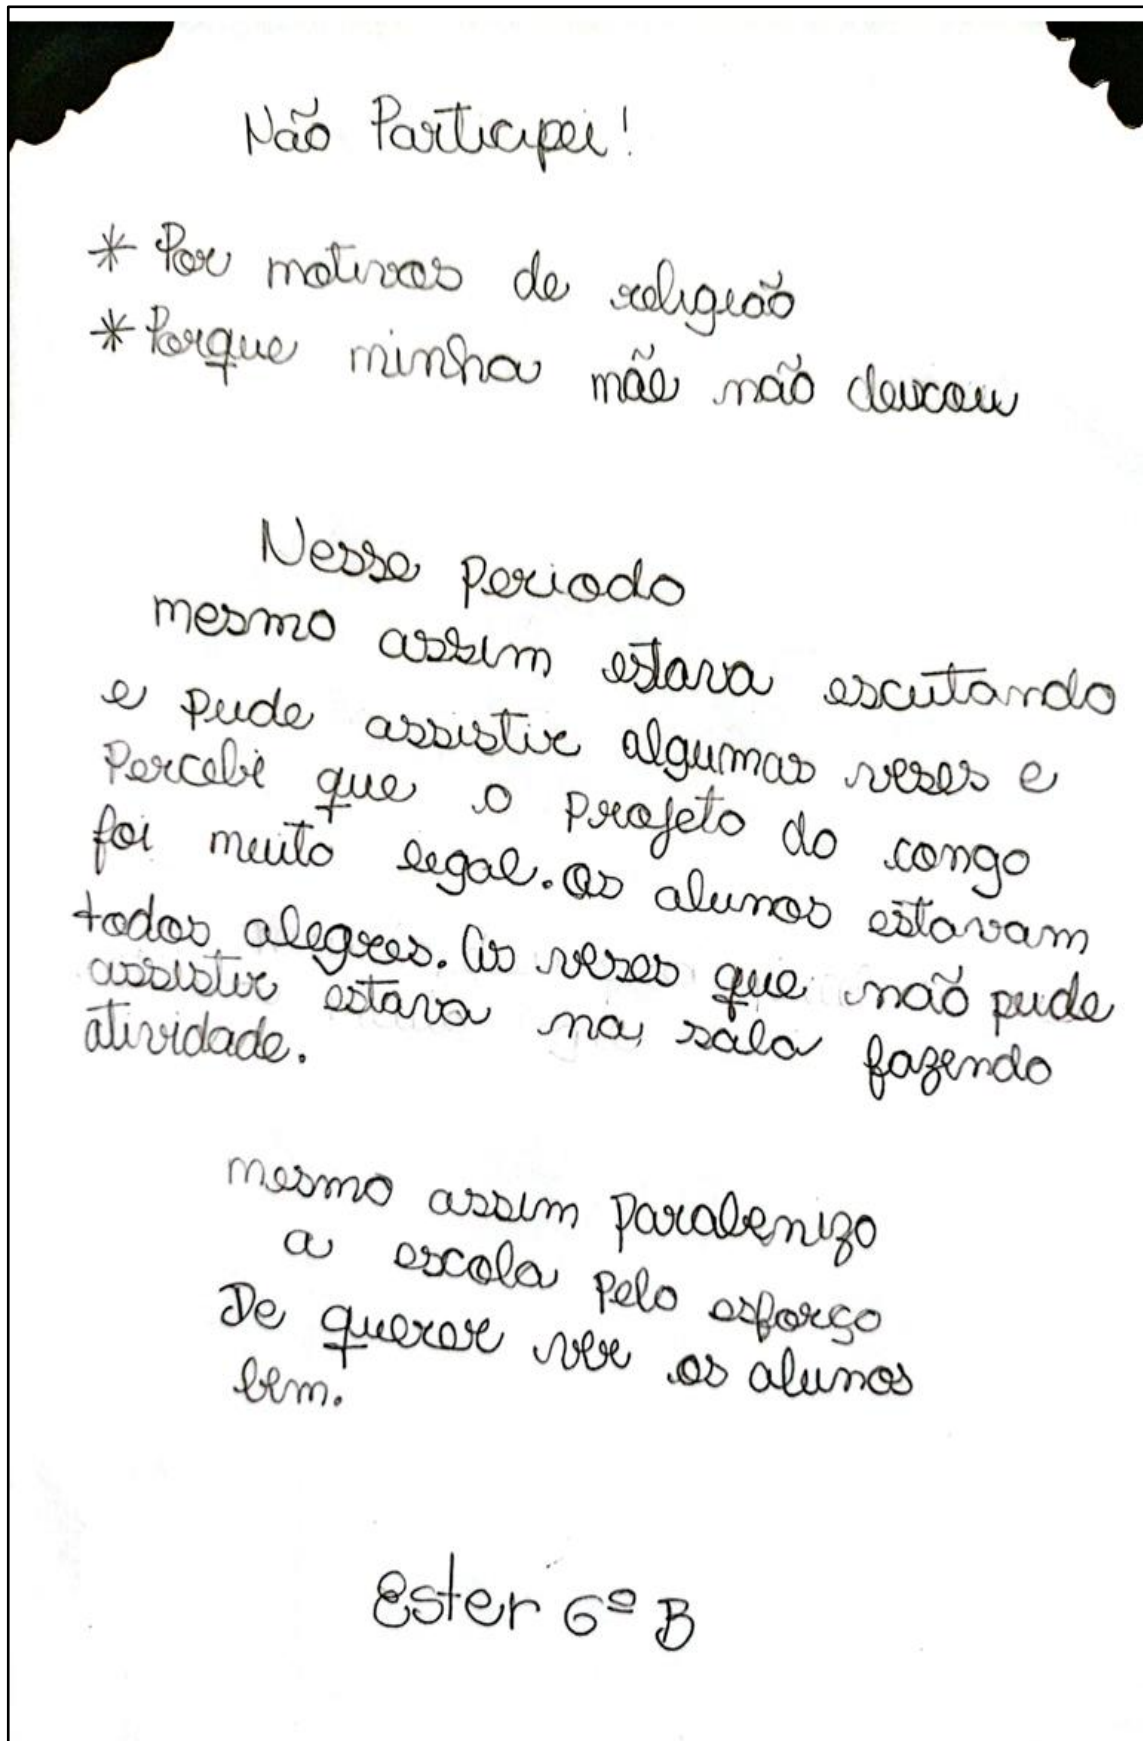 Não Participei!
* Por motivos de religião
* Porque minha mãe não deixou
Nesse Periodo
mesmo assim estava escutando
e pude assistir algumas veses e
Percebi que o projeto do congo
foi muito legal. Os alunos estavam
todos alegres. As veses que não pude
assistir estava na sala fazendo
atividade.
mesmo assim Parabenizo
a escola Pelo esforço
De querer ver os alunos
bem.
Ester 6º B